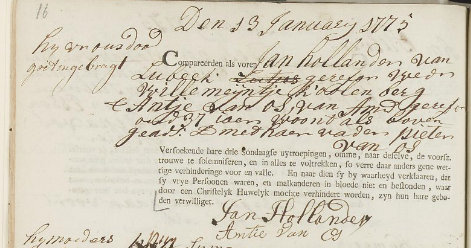 16
Den 13 January 1775
Compareerden als vore, Jan hollander van
Lubeck geref: en Wedr
Willemeÿntje
& Antje van Os, van Amst geref
oud 37 iaer woont als boven
geadt met haer vader pieter
van Os
Versoekende hare drie Sondaagse uytroepingen, omme, naar deselve, de voorsz.
trouwe te solemniseren, en in alles te voltrekken, so verre daar anders gene wet-
tige verhinderinge voor en valle. En naar dien sy by waarheyd verklaarden, dat
sy vrye Persoonen waren, en malkanderen in bloede niet en bestonden, waar
door een Christelyk Huwelyk mochte verhindert worden, zyn hun hare gebo-
den verwilliget.
Jan Hollander
Antie van Os
hy moeders